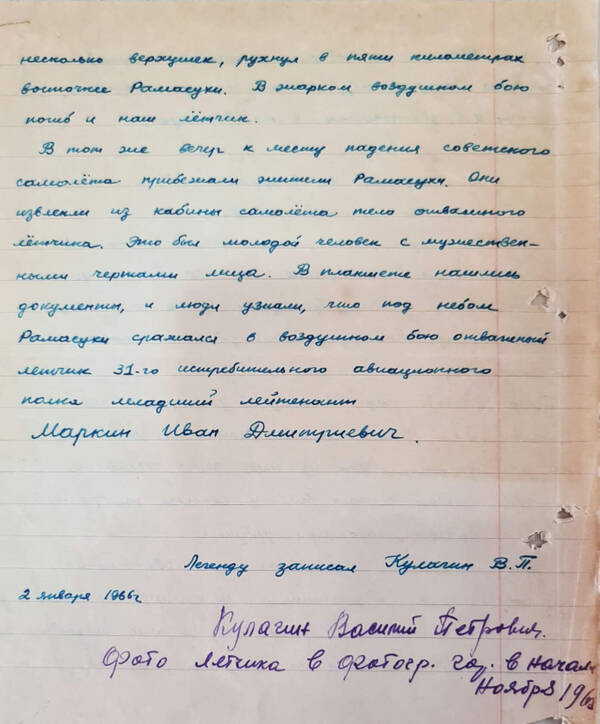 несколько верхушек, рухнул в пяти километрах
восточнее Рамасухи. В жарком воздушном бою
погиб и наш лётчик.
В тот же вечер к месту падения советского
самолёта прибежали жители Рамасухи. Они
извлекли из кабины самолёта тело отважного
лётчика. Это был молодой человек с мужествен-
ными чертами лица. В планшете нашлись
документы, и люди узнали, что под небом
Рамасухи сражался в воздушном бою отважный
летчик 31-го истребительного авиационного
полка младший лейтенант
Маркин Иван Дмитриевич.
Легенду записал Кулагин В.П.
2 января 1966г
Кулагин Василий Петрович.
Фото летчика в фотогр. гоз. в начале
Ноября